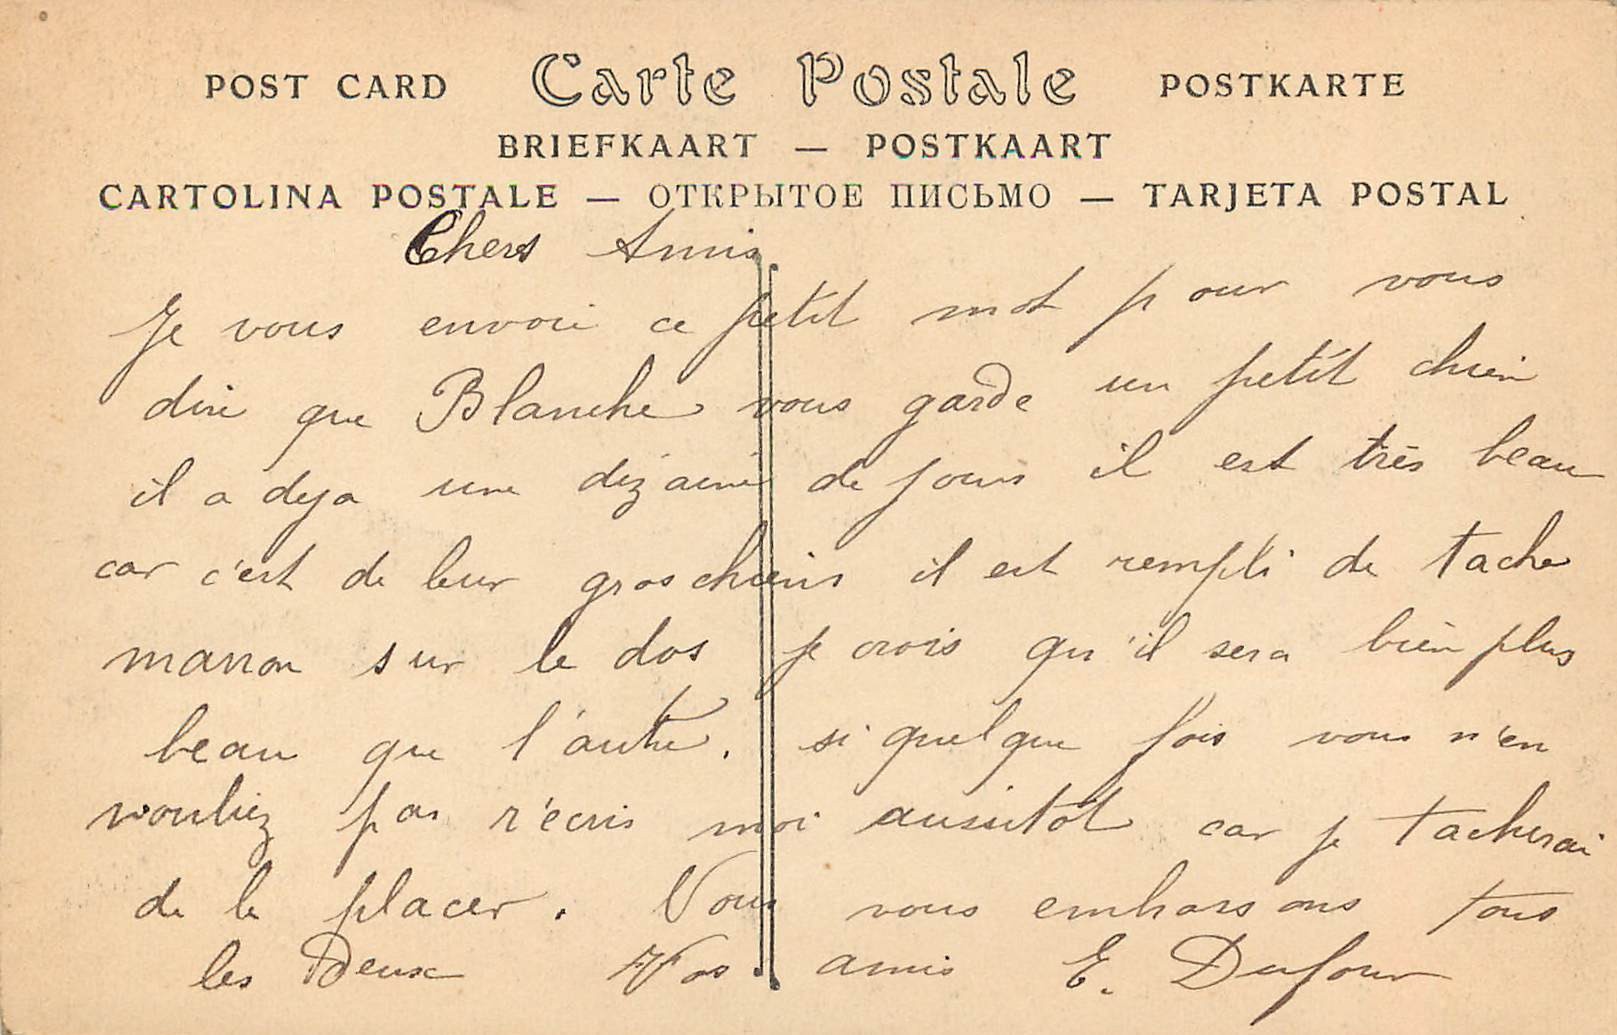 POST CARD Carte Postale POSTKARTE
BRIEFKAART — POSTKAART
CARTOLINA POSTALE — ОТКРЫТОЕ ПИСЬМО — TARJETA POSTAL
Chers Amis
Je vous envoie ce petit mot pour vous
dire que Blanche vous garde un petit chien
il a deja une dizaine de jours il est très beau
car c'est de leur gros chiens il est rempli de tache
marron sur le dos je crois qu'il sera bien plus
beau que l'autre. si quelque fois vous n'en
vouliez pas r'écris moi aussitôt car je tacherai
de le placer. Nous vous embrassons tous
les Deux Vos amis E. Dufour